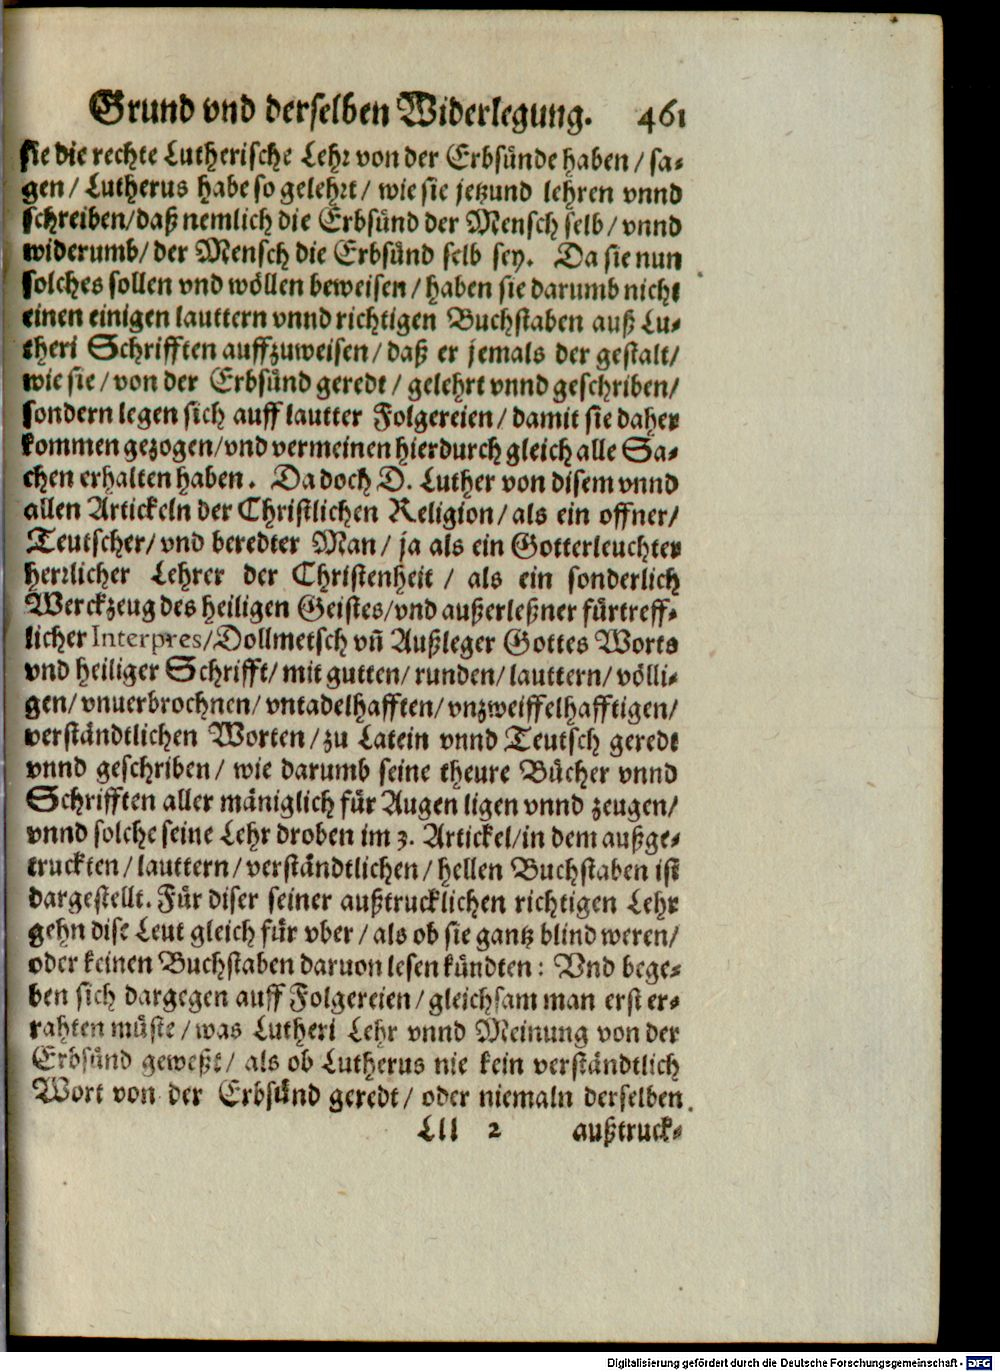 Grund vnd derselben Widerlegung. 461
sie die rechte Lutherische Lehr von der Erbsünde haben / sa-
gen / Lutherus habe so gelehrt / wie sie jetzund lehren vnnd
schreiben / daß nemlich die Erbsünd der Mensch selb / vnnd
widerumb / der Mensch die Erbsünd selb sey. Da sie nun
solches sollen vnd wöllen beweisen / haben sie darumb nicht
einen einigen lauttern vnnd richtigen Buchstaben auß Lu-
theri Schrifften auffzuweisen / daß er jemals der gestalt /
wie sie / von der Erbsünd geredt / gelehrt vnnd geschriben /
sondern legen sich auff lautter Folgereien / damit sie daher
kommen gezogen / vnd vermeinen hierdurch gleich alle Sa-
chen erhalten haben. Da doch D. Luther von disem vnnd
allen Artickeln der Christlichen Religion / als ein offner /
Teutscher / vnd beredter Man / ja als ein Gotterleuchter
herrlicher Lehrer der Christenheit / als ein sonderlich
Werckzeug des heiligen Geistes / vnd außerleßner fürtreff-
licher Interpres / Dollmetsch vñ Außleger Gottes Worts
vnd heiliger Schrifft / mit gutten / runden / lauttern / völli-
gen / vnuerbrochnen / vntadelhafften / vnzweiffelhafftigen /
verständtlichen Worten / zu Latein vnnd Teutsch geredt
vnnd geschriben / wie darumb seine theure Bücher vnnd
Schrifften aller mäniglich für Augen ligen vnnd zeugen /
vnnd solche seine Lehr droben im 3. Artickel / in dem außge-
truckten / lauttern / verständtlichen / hellen Buchstaben ist
dargestellt. Für diser seiner außtrucklichen richtigen Lehr
gehn dise Leut gleich für vber / als ob sie gantz blind weren /
oder keinen Buchstaben daruon lesen kündten : Vnd bege-
ben sich dargegen auff Folgereien / gleichsam man erst er-
rahten müste / was Lutheri Lehr vnnd Meinung von der
Erbsünd geweßt / als ob Lutherus nie kein verständtlich
Wort von der Erbsünd geredt / oder niemaln derselben
Lll 2 außtruck-
Digitalisierung gefördert durch die Deutsche Forschungsgemeinschaft - DFG